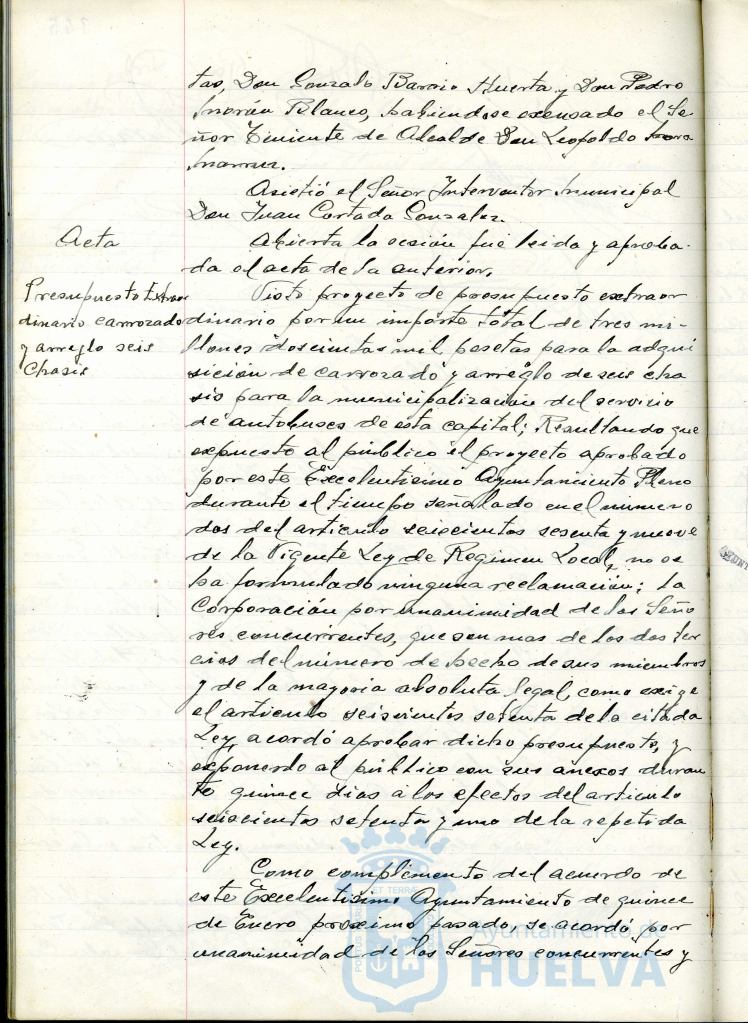 tas, Don Gonzalo Barcio Huerta y Don Pedro
Morán Blanco, habiendose excusado el Se-
ñor Teniente de Alcalde Don Leopoldo
Asistió el Señor Interventor Municipal
Don Juan Cortada Gonzalez.
Acta
Abierta la sesión fué leida y aproba-
da el acta de la anterior.
Presupuesto Extraor
dinario carrozado
y arreglo seis
Chasis
Visto proyecto de presupuesto extraor
dinario por un importe total de tres mi-
llones doscientas mil pesetas para la adqui
sición de carrozado y arreglo de seis cha
sis para la municipalización del servicio
de autobuses de esta capital; Resultando que
expuesto al público el proyecto aprobado
por este Excelentisimo Ayuntamiento Pleno
durante el tiempo señalado en el número
dos del articulo seiscientos sesenta y nueve
de la Vigente Ley de Regimen Local, no se
ha formulado ninguna reclamación; la
Corporación por unanimidad de los Seño
res concurrentes, que son mas de los dos ter
cios del número de hecho de sus miembros
y de la mayoria absoluta legal, como exige
el articulo seiscientos setenta de la citada
Ley, acordó aprobar dicho presupuesto, y
exponerlo al público con sus anexos duran
te quince dias a los efectos del articulo
seiscientos setenta y uno de la repetida
Ley.
Como complemento del acuerdo de
este Excelentisimo Ayuntamiento de quince
de Enero proximo pasado, se acordó por
unanimidad de los Señores concurrentes y
Ayuntamiento de
HUELVA